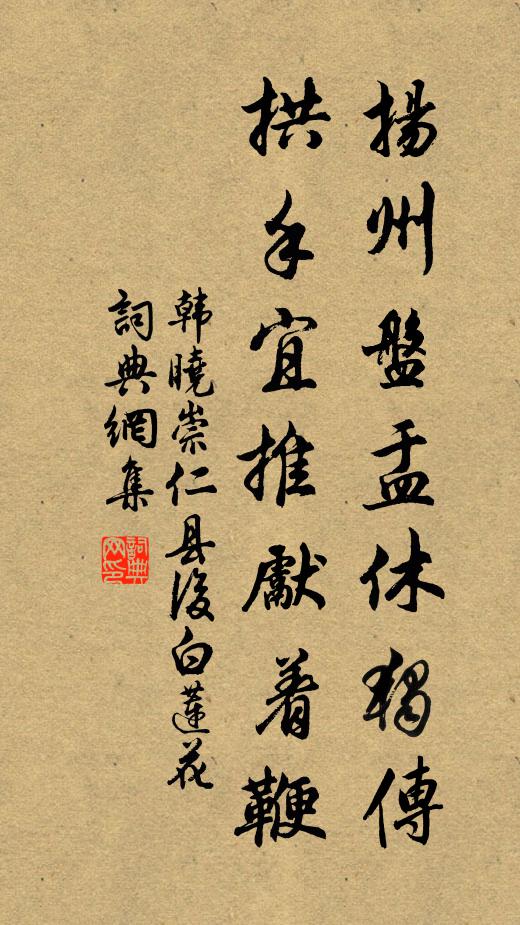 揚州盤盂休獨傳
拱手宜推獻着鞭
韩曉崇仁县後白蓮花
詞典網集
詞典网印